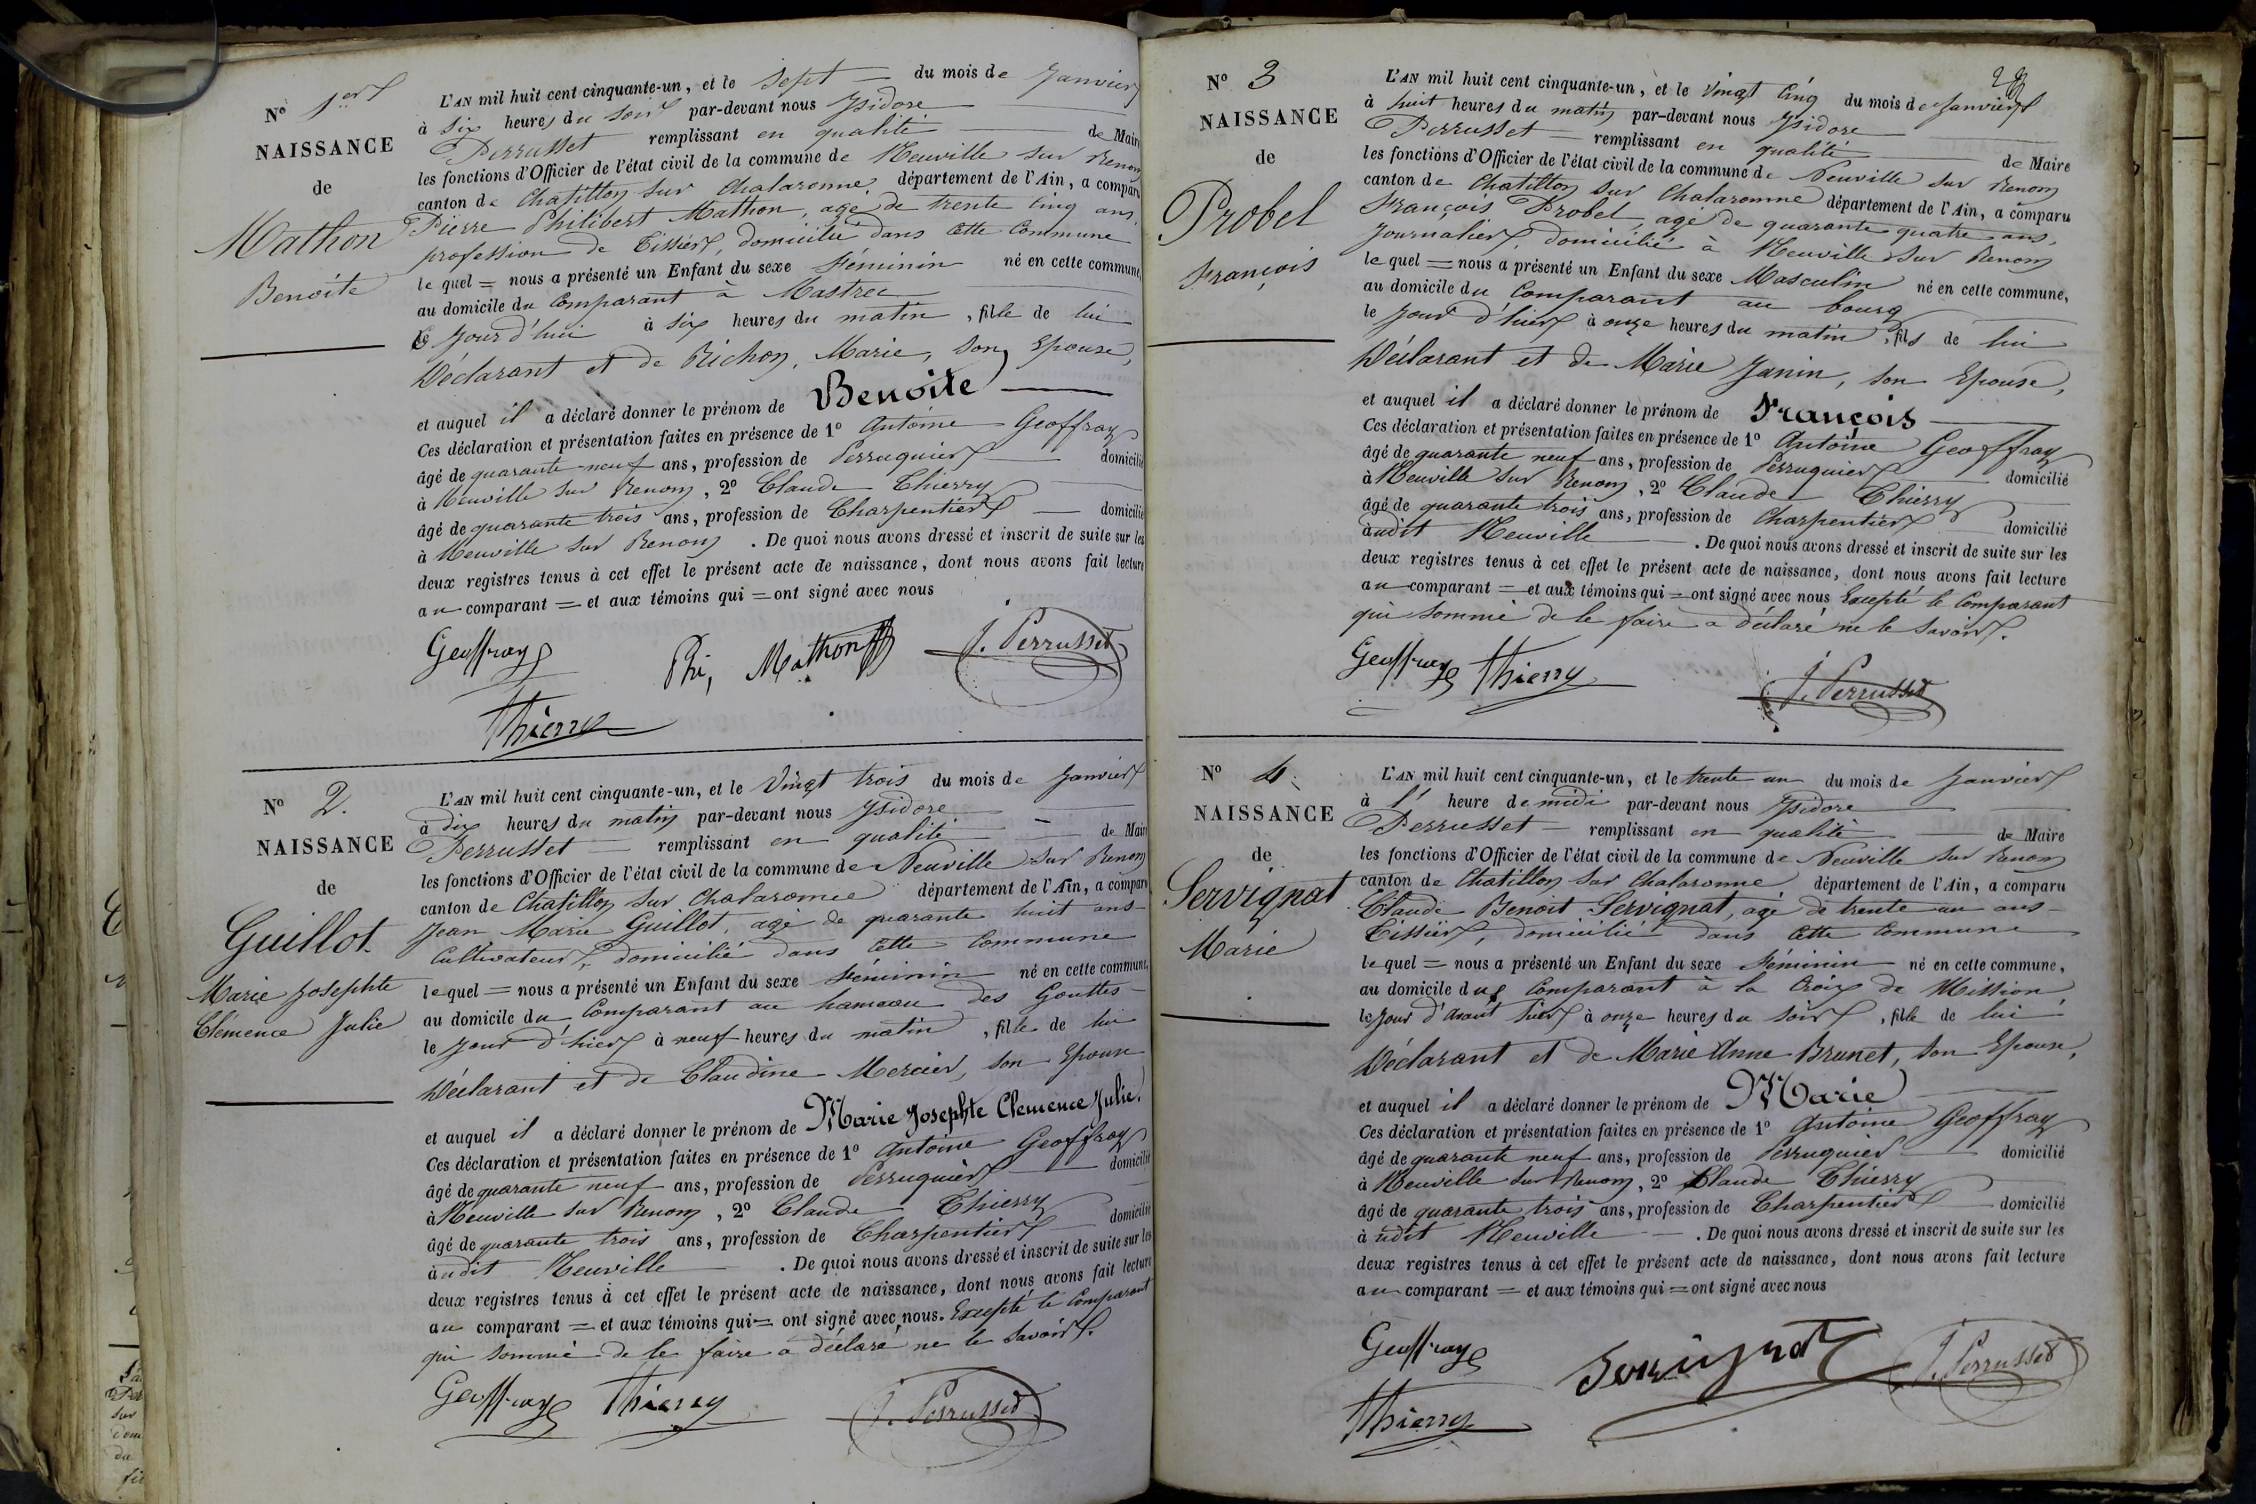 N° 1er
NAISSANCE
de
Mathon
Benoite
L'AN mil huit cent cinquante-un, et le sept = du mois de Janvier
à six heures du soir par-devant nous Ysidore
Perrusset remplissant en qualité de Maire
les fonctions d'Officier de l'état civil de la commune de Neuville sur Renom
canton de Chatillon sur Chalaronne, département de l'Ain, a comparu
Pierre Philibert Mathon, agé de trente cinq ans,
profession de Tissier, domicilié dans cette Commune
lequel = nous a présenté un Enfant du sexe féminin né en cette commune,
au domicile du Comparant à Mastrec
le jour d'hui à six heures du matin, fille de lui
Déclarant et de Richon, Marie, son Epouse,
et auquel il a déclaré donner le prénom de Benoite
Ces déclaration et présentation faites en présence de 1° Antoine Geoffray
âgé de quarante-neuf ans, profession de Perruquier domicilié
à Neuville sur Renom, 2° Claude Thierry
âgé de quarante trois ans, profession de Charpentier domicilié
à Neuville sur Renom. De quoi nous avons dressé et inscrit de suite sur les
deux registres tenus à cet effet le présent acte de naissance, dont nous avons fait lecture
au comparant = et aux témoins qui = ont signé avec nous
Geoffray Phi, Mathon J. Perrusset
Thierry
N° 2.
NAISSANCE
de
Guillot
Marie Josephte
Clémence Julie
L'AN mil huit cent cinquante-un, et le Vingt trois du mois de Janvier
à dix heures du matin par-devant nous Ysidore
Perrusset remplissant en qualité de Maire
les fonctions d'Officier de l'état civil de la commune de Neuville sur Renom
canton de Chatillon sur Chalaronne département de l'Ain, a comparu
Jean Marie Guillot, agé de quarante huit ans
Cultivateur, domicilié dans cette Commune
lequel = nous a présenté un Enfant du sexe féminin né en cette commune,
au domicile du Comparant au hameau des Gouttes
le jour d'hier à neuf heures du matin, fille de lui
Déclarant et de Claudine Mercier, son Epouse
et auquel il a déclaré donner le prénom de Marie Josephte Clemence Julie.
Ces déclaration et présentation faites en présence de 1° Antoine Geoffray
âgé de quarante neuf ans, profession de Perruquier domicilié
à Neuville sur Renom, 2° Claude Thierry
âgé de quarante trois ans, profession de Charpentier domicilié
àudit Neuville. De quoi nous avons dressé et inscrit de suite sur les
deux registres tenus à cet effet le présent acte de naissance, dont nous avons fait lecture
au comparant = et aux témoins qui = ont signé avec nous. Excepté le Comparant
qui sommé de le faire a déclaré ne le savoir.
Geoffray Thierry J. Perrusset
N° 3
NAISSANCE
de
Probel
François
L'AN mil huit cent cinquante-un, et le Vingt Cinq du mois de Janvier
à huit heures du matin par-devant nous Ysidore
Perrusset remplissant en qualité de Maire
les fonctions d'Officier de l'état civil de la commune de Neuville sur Renom
canton de Chatillon sur Chalaronne département de l'Ain, a comparu
François Probel, agé de quarante quatre ans,
Journalier, domicilié à Neuville sur Renom
lequel = nous a présenté un Enfant du sexe Masculin né en cette commune,
au domicile du Comparant au bourg
le jour d'hier à onze heures du matin, fils de lui
Déclarant et de Marie Janin, son Epouse,
et auquel il a déclaré donner le prénom de François
Ces déclaration et présentation faites en présence de 1° Antoine Geoffray
âgé de quarante neuf ans, profession de Perruquier domicilié
à Neuville sur Renom, 2° Claude Thierry
âgé de quarante trois ans, profession de Charpentier domicilié
àudit Neuville. De quoi nous avons dressé et inscrit de suite sur les
deux registres tenus à cet effet le présent acte de naissance, dont nous avons fait lecture
au comparant = et aux témoins qui = ont signé avec nous Excepté le Comparant
qui sommé de le faire a déclaré ne le savoir.
Geoffray Thierry J. Perrusset
N° 4.
NAISSANCE
de
Servignat
Marie
L'AN mil huit cent cinquante-un, et le trente un du mois de Janvier
à l' heure de midi par-devant nous Ysidore
Perrusset remplissant en qualité de Maire
les fonctions d'Officier de l'état civil de la commune de Neuville sur Renom
canton de Chatillon sur Chalaronne, département de l'Ain, a comparu
Claude Benoit Servignat, agé de trente un ans
Tissier, domicilié dans cette Commune
lequel = nous a présenté un Enfant du sexe féminin né en cette commune,
au domicile du Comparant à la Croix de Mission
le jour d'avant hier à onze heures du soir, fille de lui
Déclarant et de Marie Anne Brunet, son Epouse,
et auquel il a déclaré donner le prénom de Marie
Ces déclaration et présentation faites en présence de 1° Antoine Geoffray
âgé de quarante neuf ans, profession de Perruquier domicilié
à Neuville sur Renom, 2° Claude Thierry
âgé de quarante trois ans, profession de Charpentier domicilié
à udit Neuville. De quoi nous avons dressé et inscrit de suite sur les
deux registres tenus à cet effet le présent acte de naissance, dont nous avons fait lecture
au comparant = et aux témoins qui = ont signé avec nous
Geoffray Servignat J. Perrusset
Thierry